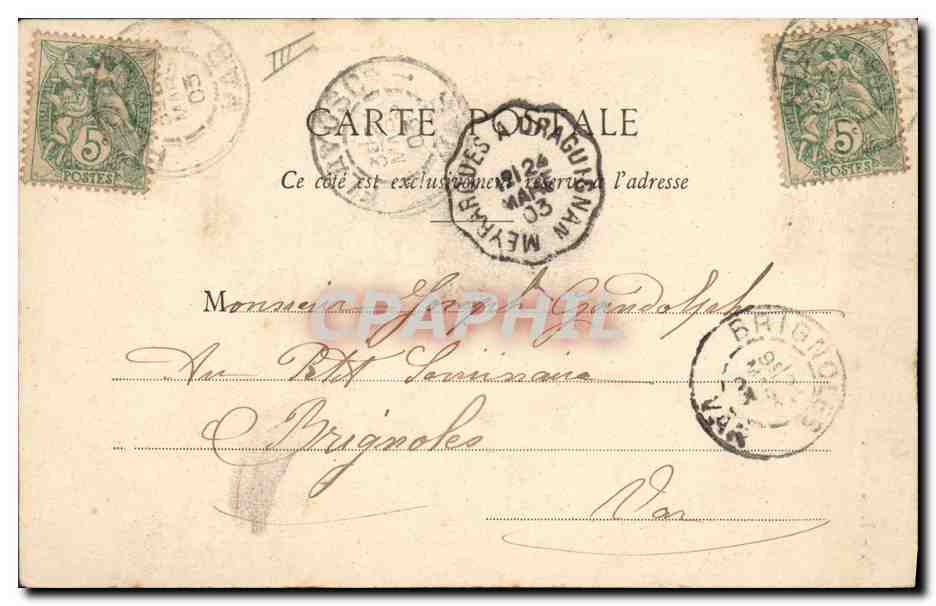 CARTE POSTALE
Ce côté est exclusivement réservé à l'adresse
MEYRARGUES A DRAGUIGNAN
24
03
5c
POSTES
VAR
03
5c
POSTES
Monsieur Joseph Gandolphe
Au Petit Séminaire
Brignoles
Var
BRIGNOLES
VAR
CPAPHIL